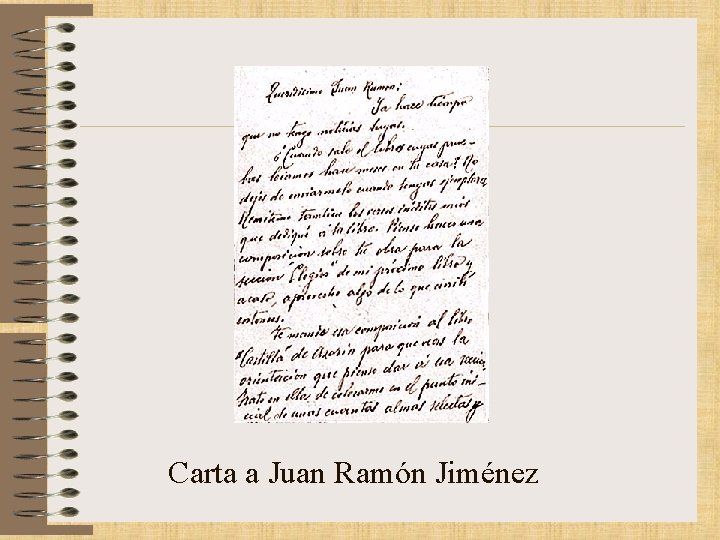 Queridisimo Juan Ramon:
Ya hace tiempo
que no tengo noticias tuyas.
¿Cuando sale el libro cuyas prue-
bas leiamos hace meses en tu casa? No
dejes de enviarmelo cuando tengas ejemplares
Remiteme tambien los versos inéditos mios
que dediqué a tu libro. Pienso hacer una
composición sobre tu obra para la
sección "Elogios" de mi próximo libro y
acaso, aproveche algo de lo que escribí
entonces.
Te mando esa composición al libro
"Castilla" de Azorin para que veas la
orientación que pienso dar a esa sección
Trato en ella de colocarme en el punto ini-
cial de unas cuantas almas selectas y
Carta a Juan Ramón Jiménez